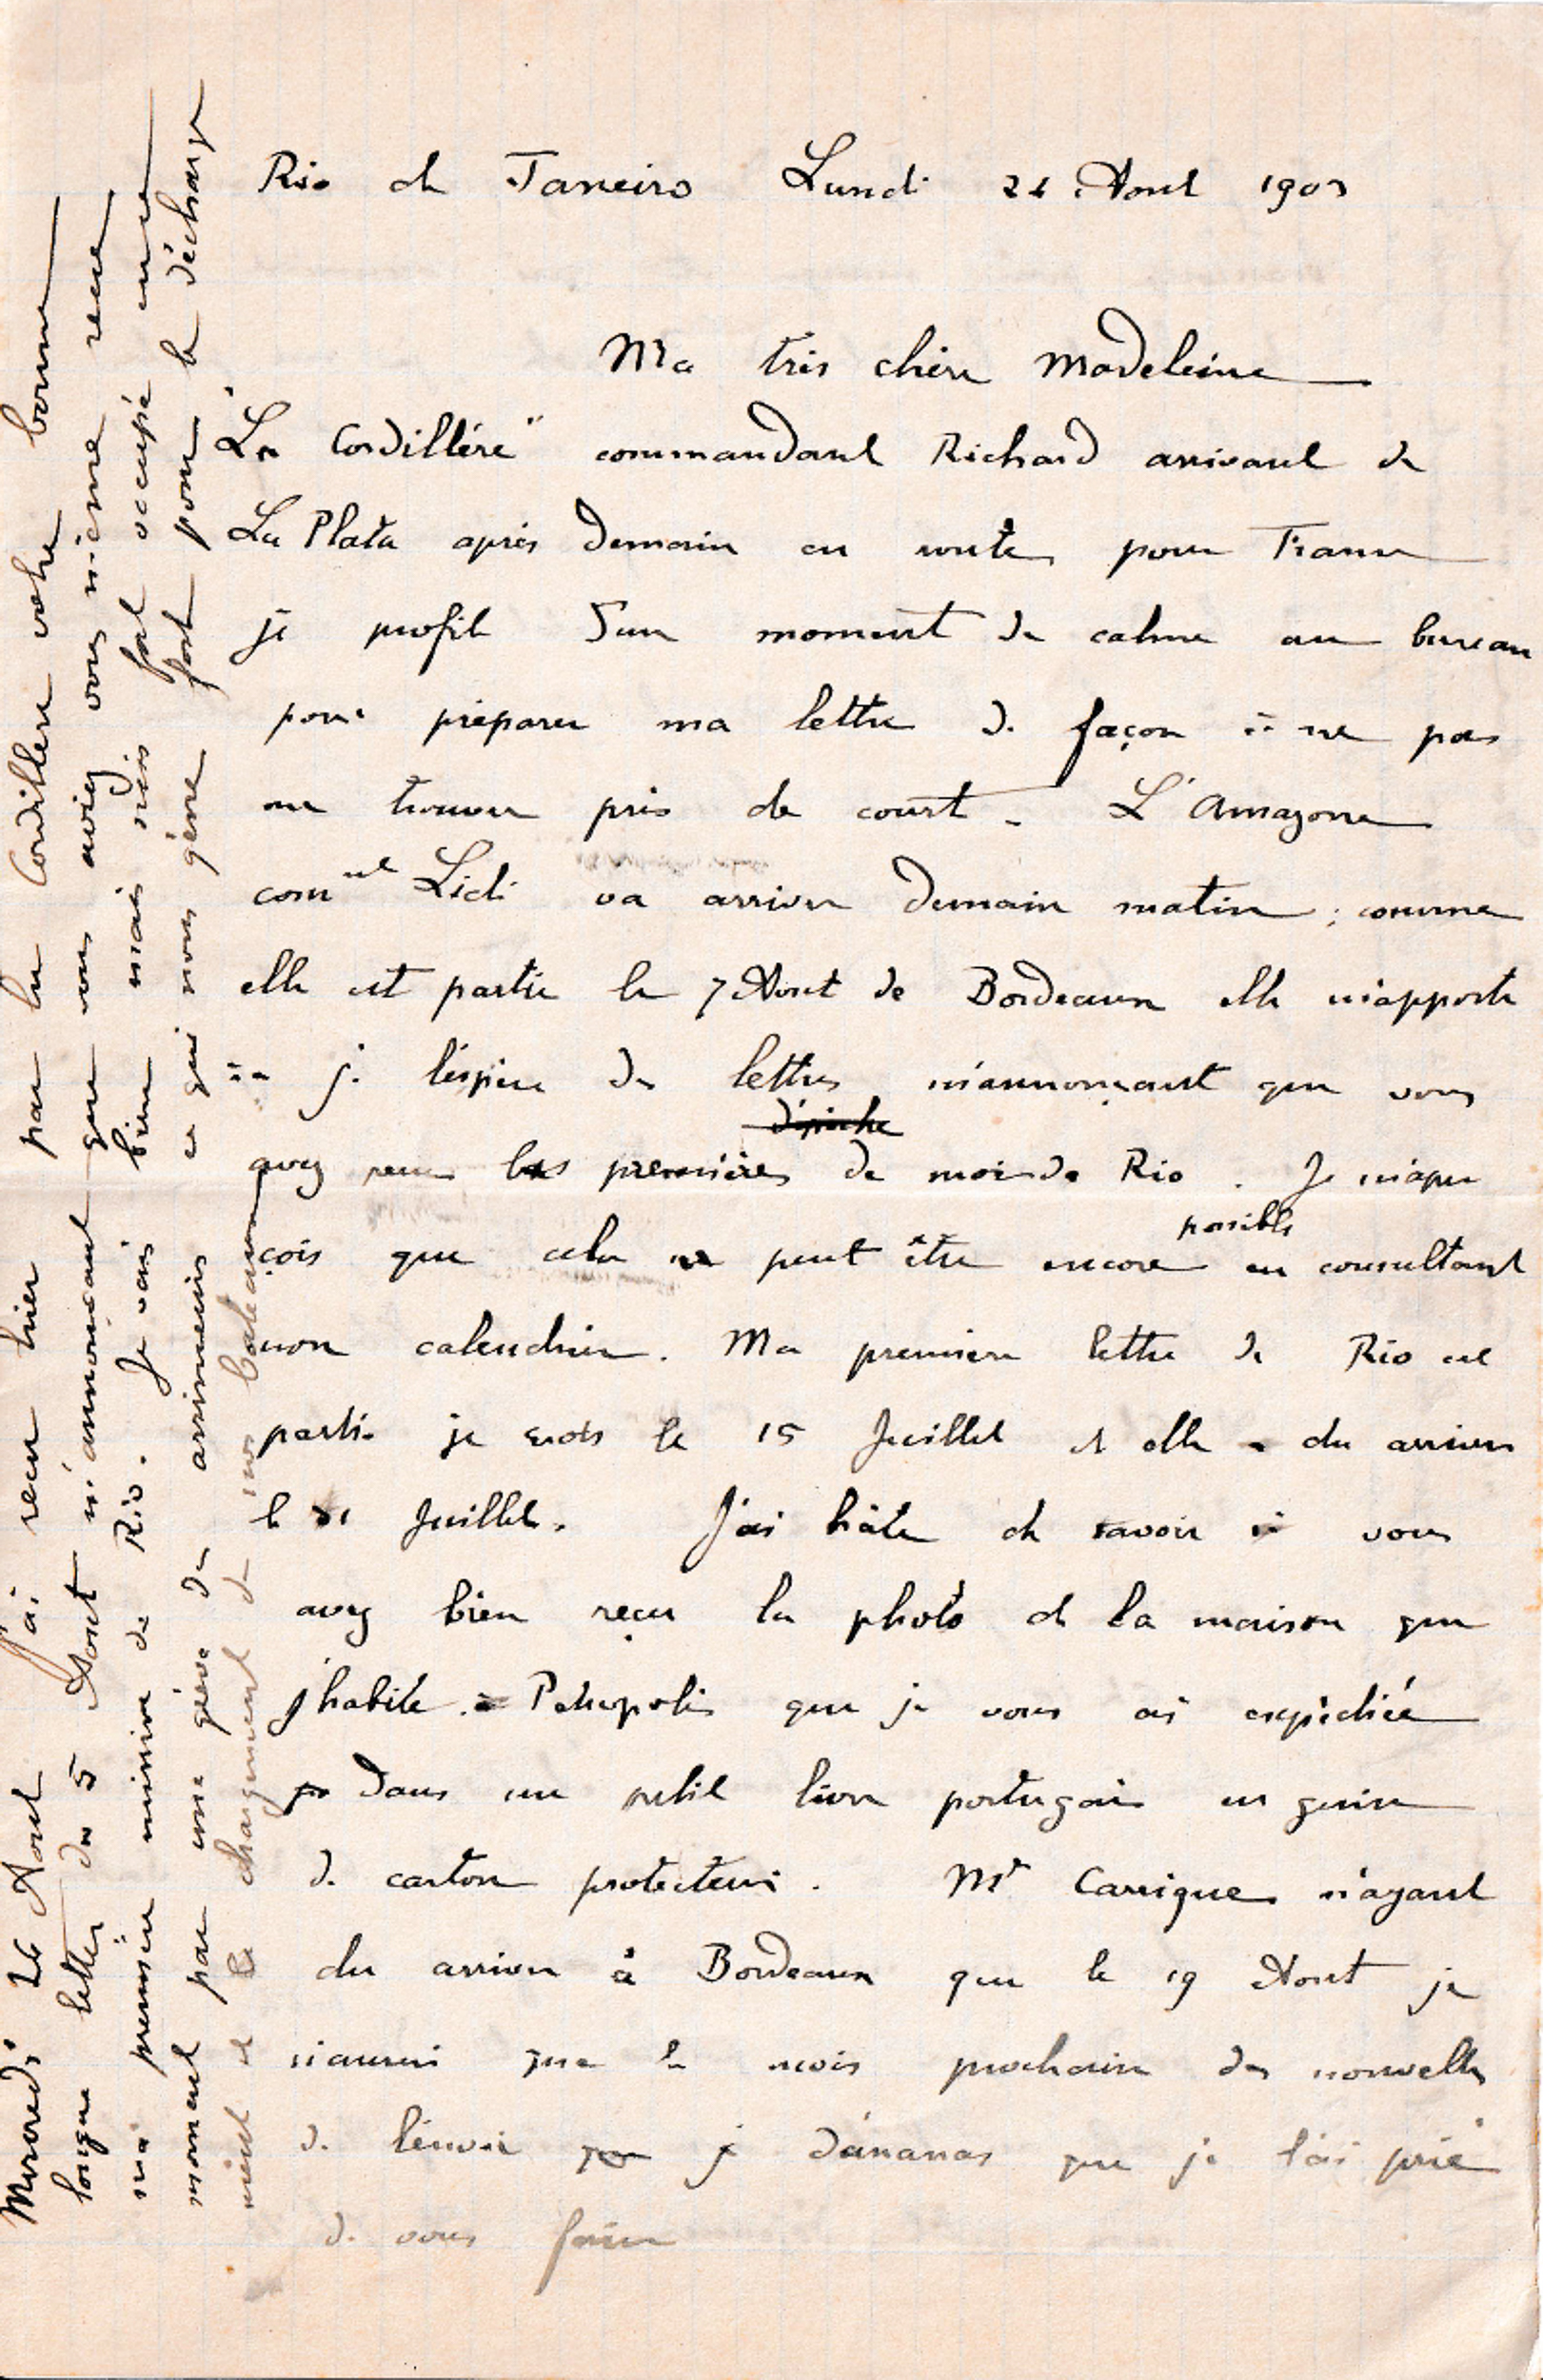 Rio de Janeiro Lundi 24 Aout 1903
Ma très chère Madeleine
"La Cordillère" commandant Richard arrivant de
La Plata après demain en route pour France
je profite d'un moment de calme au bureau
pour préparer ma lettre de façon à ne pas
me trouver pris de court. L'Amazone
comnt Lidi va arriver demain matin ; comme
elle est partie le 7 Aout de Bordeaux elle m'apporte
à je l'espère des lettres m'annonçant que vous
avez reçu les premières de moi de Rio. Je m'aper
çois que cela ne peut être encore possible en consultant
mon calendrier. Ma première lettre de Rio est
partie je crois le 15 Juillet et elle a du arriver
le 31 Juillet. J'ai hâte de savoir si vous
avez bien reçu la photo de la maison que
j'habite à Petropolis que je vous ai expédiée
dans un petit livre portugais en guise
de carton protecteur. Mr Carrigues n'ayant
du arriver à Bordeaux que le 19 Aout je
n'aurai que le mois prochain des nouvelles
de l'envoi d'ananas que je l'ai prié
de vous faire
Mercredi 26 Aout j'ai reçu hier par la Cordillère votre bonne
longue lettre du 5 Aout m'annonçant que vous aviez vous même reçu
ma première missive de Rio. Je vais bien mais suis fort occupé en ce
moment par une grève des arrimeurs ce qui nous gêne fort pour la décharge
ment et le chargement de nos bateaux